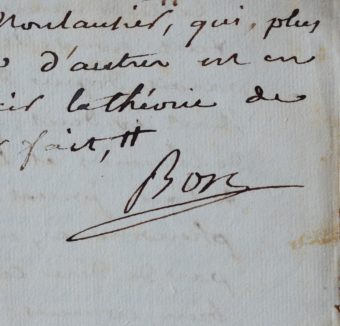 Montausier, qui, plus
d'autres est en
la théorie de
fait, #
Bosc